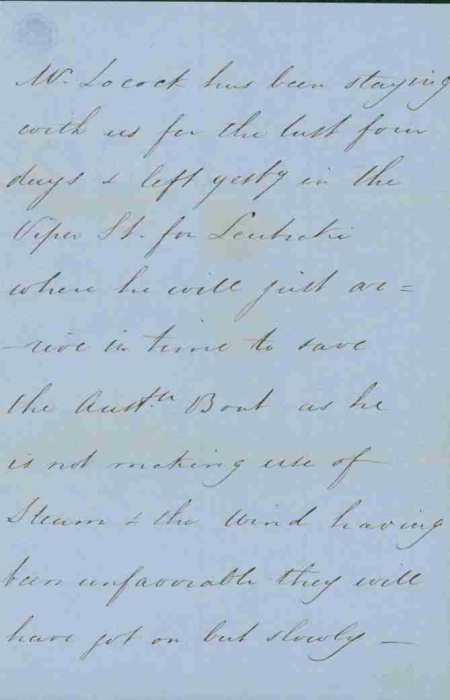 Mr. Locock has been staying
with us for the last four
days & left yesty in the
Viper St. for Loutraki
where he will just ar=
-rive in time to save
the Austn Boat as he
is not making use of
Steam & the wind having
been unfavorable they will
have got on but slowly —